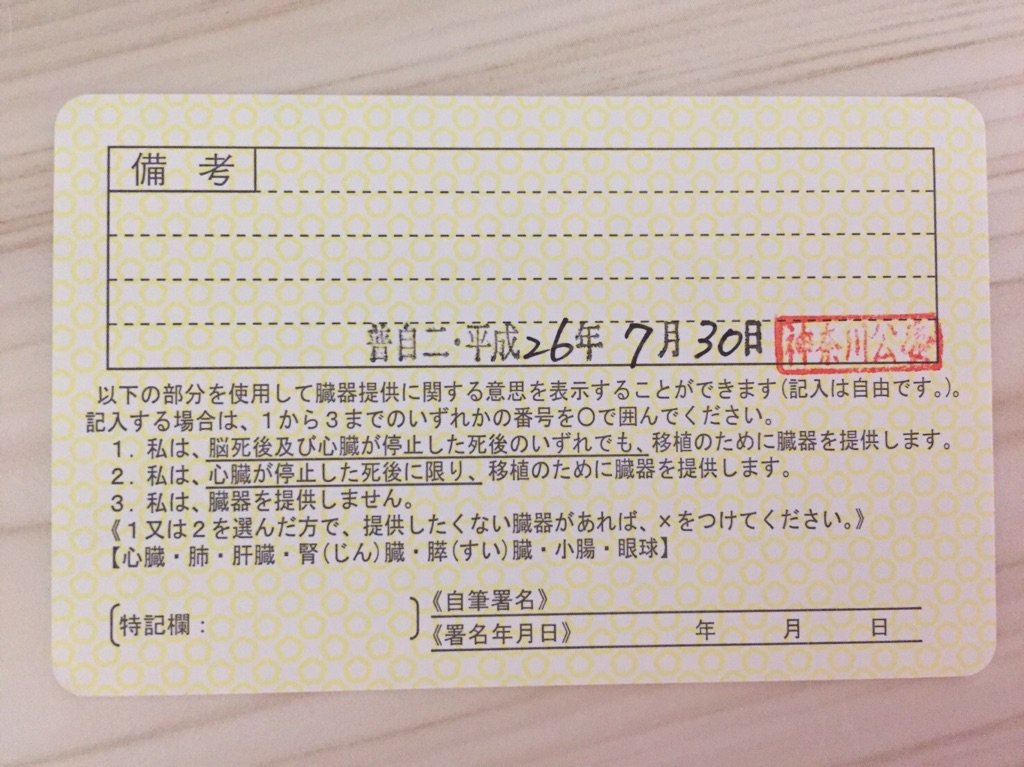 備考
普自二・平成26年7月30日 神奈川公委
以下の部分を使用して臓器提供に関する意思を表示することができます(記入は自由です。)。
記入する場合は、1から3までのいずれかの番号を〇で囲んでください。
1. 私は、脳死後及び心臓が停止した死後のいずれでも、移植のために臓器を提供します。
2. 私は、心臓が停止した死後に限り、移植のために臓器を提供します。
3. 私は、臓器を提供しません。
《1又は2を選んだ方で、提供したくない臓器があれば、×をつけてください。》
【心臓・肺・肝臓・腎(じん)臓・膵(すい)臓・小腸・眼球】
《自筆署名》
〔特記欄:〕
《署名年月日》 年 月 日